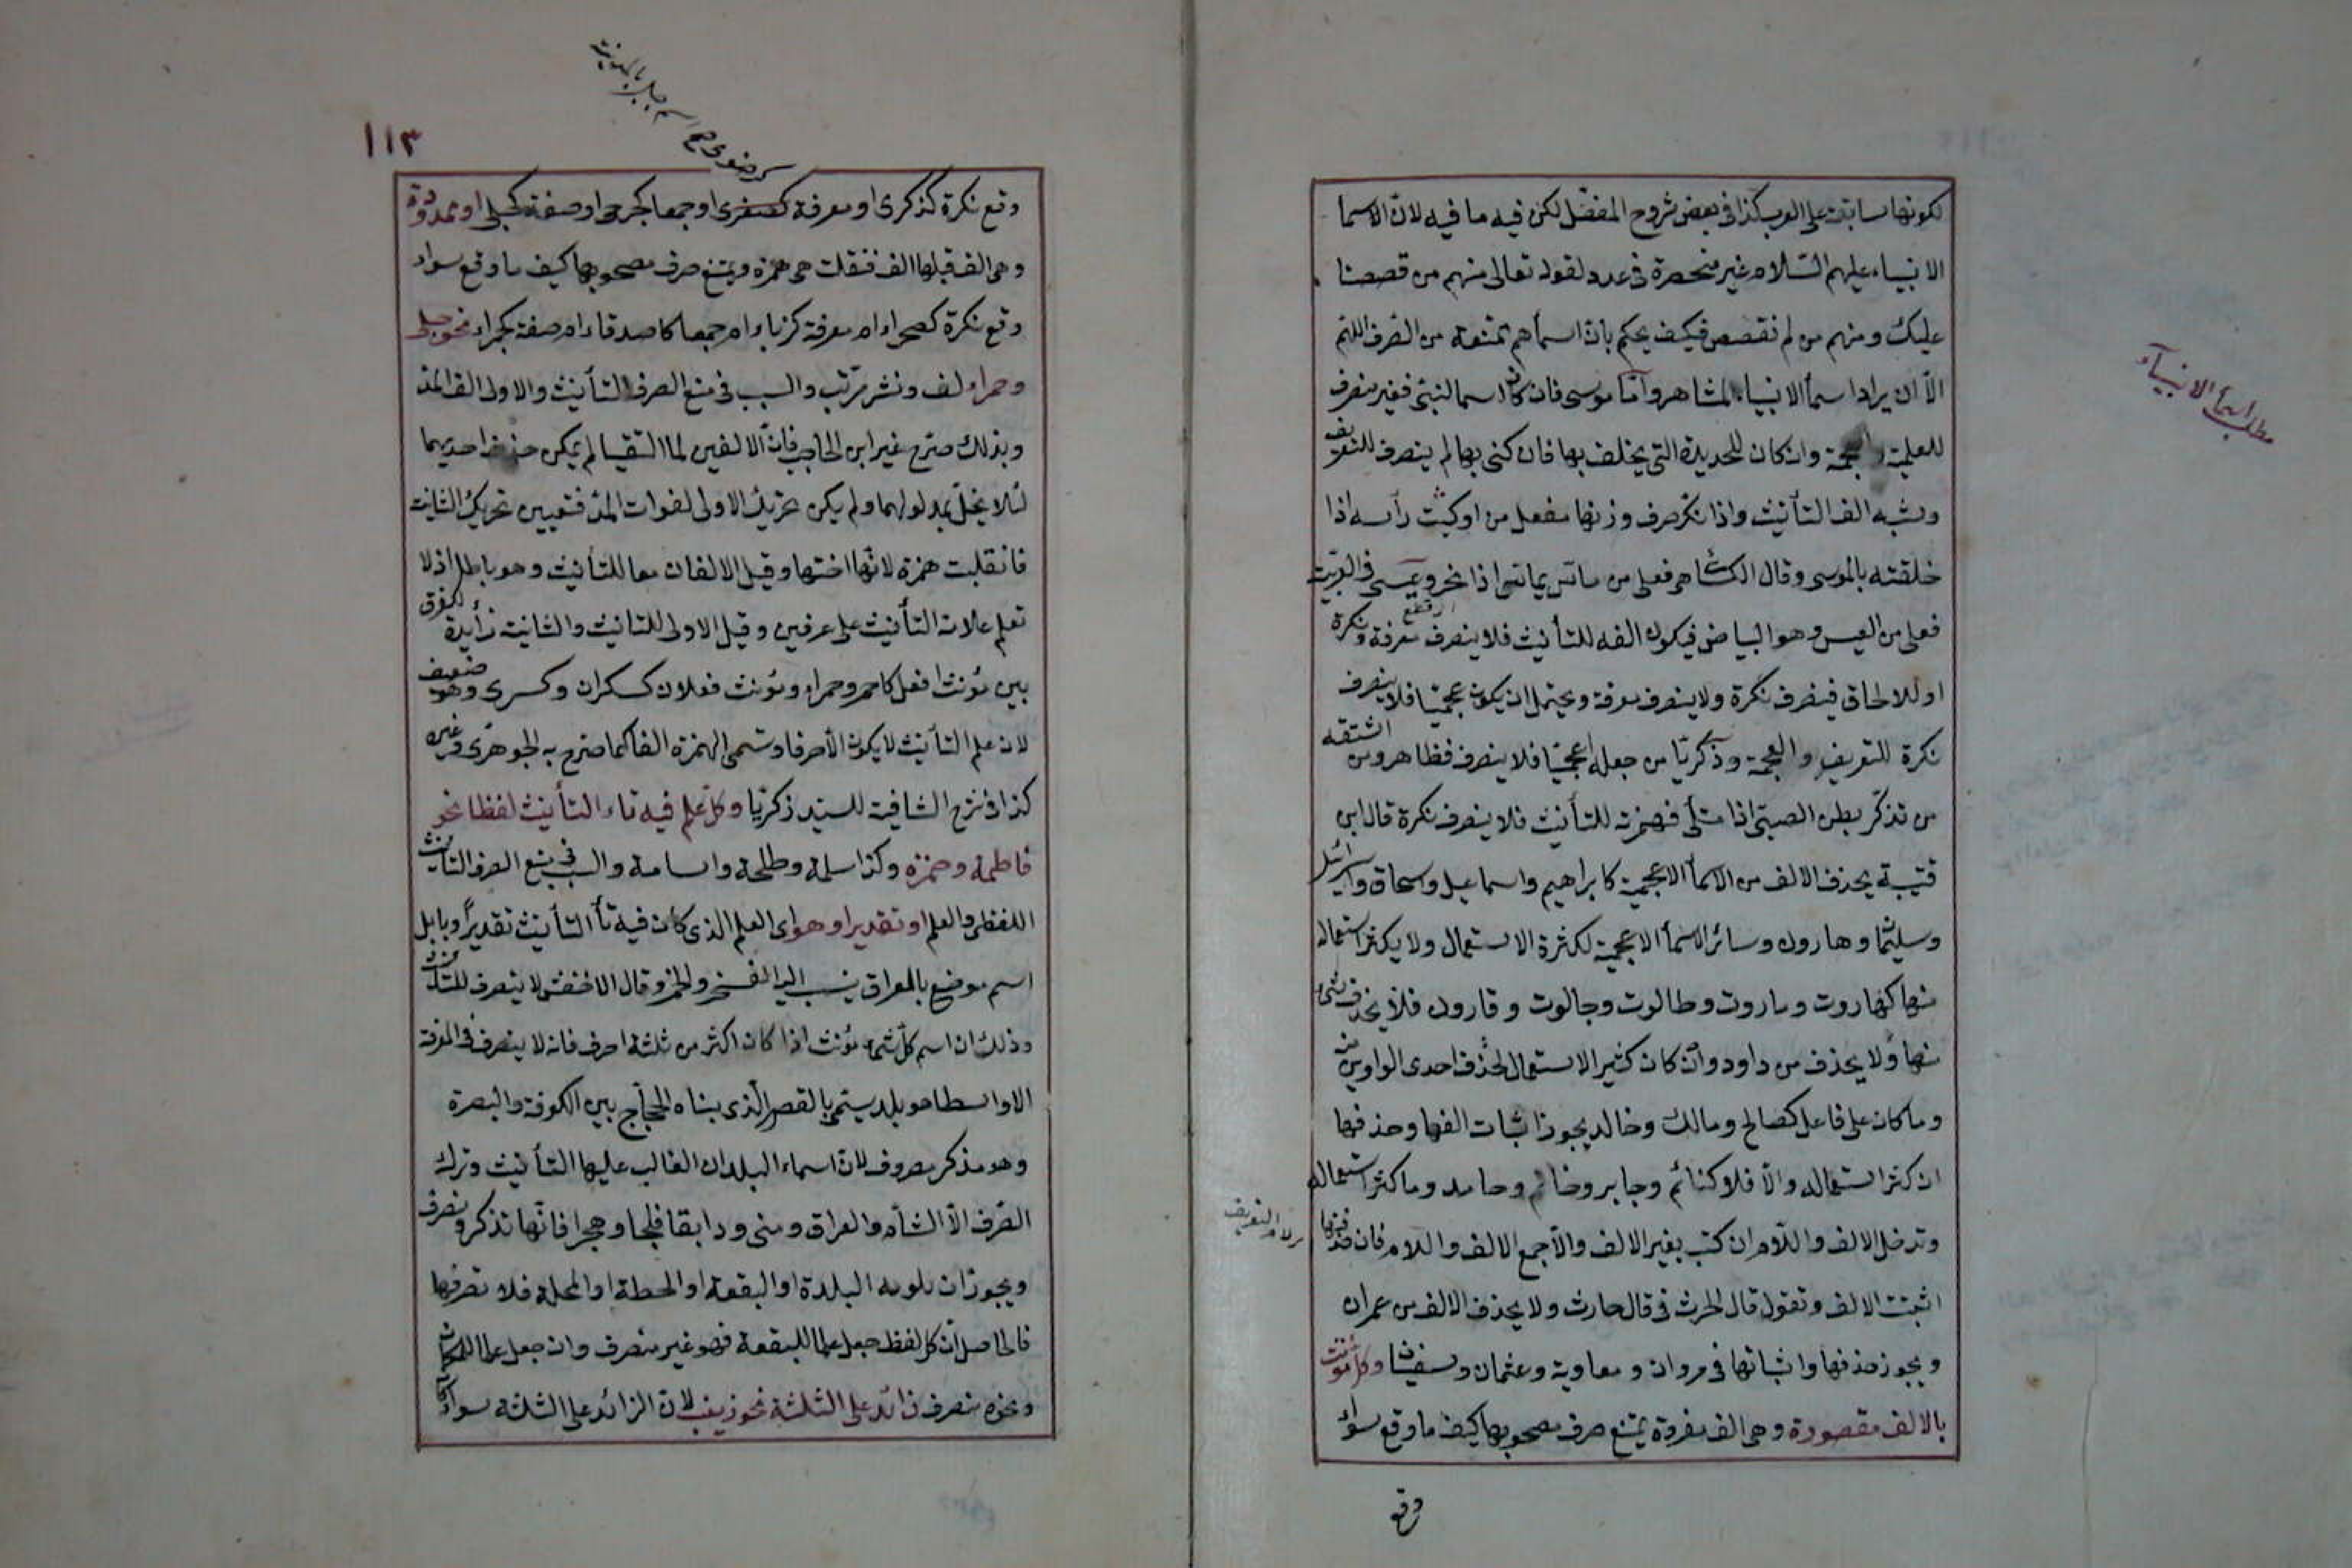 لكونها سابقة على العرب كذا فى بعض شروح المفصل لكن فيه ما فيه لان الاسما
الانبياء عليهم السلام غير منحصرة فى عدد لقوله تعالى منهم من قصصنا
عليك ومنهم من لم نقصص فكيف يحكم بان اسماهم ممتنعة من الصرف اللهم
الا ان يراد اسما الانبياء المشاهر واما موسى فان كان اسما لنبى فغير منصرف
للعلمية والعجمة وان كان للحديدة التى يحلق بها فان كنى بها لم ينصرف للتعريف
وشبه الف التأنيث واذا نكر صرف وزنها مفعل من اوكيت رأسه اذا
حلقته بالموسى وقال الكسائى هى فعلى من ماس يماس اذا نحر وعيسى فى العربية
فعلى من العيس وهو البياض فيكون الفه للتأنيث فلا ينصرف معرفة ونكرة
او للالحاق فينصرف نكرة ولا ينصرف معرفة ويحتمل ان يكون عجميا فلا ينصرف
نكرة للتعريف والعجمة وزكريا من جعله اعجميا فلا ينصرف فظاهر ومن اشتقه
من تذكر بطن الصبى اذا امتلى فهمزته للتأنيث فلا ينصرف نكرة قال ابن
قتيبة يحذف الالف من الاسما الاعجمية كابراهيم واسماعيل واسحاق واسرائيل
وسليمان وهارون وسائر الاسما الاعجمية لكثرة الاستعمال ولا يكثر استعماله
منها كهاروت وماروت وطالوت وجالوت وقارون فلا يحذف شئ
منها ولا يحذف من داود وان كان كثير الاستعمال لحذف احدى الواوين منه
وما كان على فاعل كصالح ومالك وخالد يجوز اثبات الفها وحذفها
ان كثر استعماله والا فلا كغانم وجابر وحاتم وحامد وما كثر استعماله
وتدخل الالف واللام ان كتب بغير الالف والا جمع الالف واللام فان حذفتها
اثبتت الالف وتقول قال الحرث فى قال حارث ولا يحذف الالف من عمران
ويجوز حذفها واثباتها فى مروان ومعاوية وعثمان وسفيان وكل مؤنث
بالالف مقصورة وهى الف مفردة يمتنع صرف مصحوبها كيف ما وقع سواء
وقع
مطلب اسما الانبياء
لام التعريف
١١٣
وقع نكرة كذكرى او معرفة كصفرى او جمعا كجرحى او صفة كحبلى او ممدودة
وهى الف قبلها الف فنقلت هى همزة ويمتنع صرف مصحوبها كيف ما وقع سواء
وقع نكرة كصحراء ام معرفة كزكرياء ام جمعا كاصدقاء ام صفة كحمراء نحو حبلى
وحمراء لف ونشر مرتب والسبب فى منع الصرف التأنيث والاولى الف المد
وبذلك صرح غير ابن الحاجب فان الالفين لما التقيا لم يمكن حذف احديهما
لئلا يخل بمدلولهما ولم يكن تحريك الاولى لفوات المد فتعيين تحريك الثانية
فانقلبت همزة لانها اختها وقيل الالفان معا للتأنيث وهو باطل اذ لا
تعلم علامة التأنيث على حرفين وقيل الاولى للتانيث والثانية زايدة للفرق
بين مؤنث افعل كاحمر وحمراء ومؤنث فعلان كسكران وسكرى وهو ضعيف
لان علم التأنيث لا يكون الا حرفا وتسمى الهمزة الفا كما صرح به الجوهرى وغيره
كذا فى شرح الشافية للسيد زكريا وكل علم فيه تاء التأنيث لفظا نحو
فاطمة وحمزة وكذا سلمة وطلحة واسامة والسبب فى منع الصرف التأنيث
اللفظى والعلم او تقديرا وهو اى العلم الذى كان فيه تأ التأنيث تقديرا وبابل
اسم موضع بالعراق ينسب اليه السحر والخمر وقال الاخفش لا ينصرف للتأنيث
وذلك ان اسم كل شئ مؤنث اذا كان اكثر من ثلثة احرف فانه لا ينصرف فى المعرفة
الا واسطا هو بلد يسمى بالقصر الذى بناه الحجاج بين الكوفة والبصرة
وهو مذكر مصروف لان اسماء البلدان الغالب عليها التأنيث وترك
الصرف الا الشأم والعراق ومنى ودابقا وفلجا وهجرا فانها تذكر وتصرف
ويجوز ان يكون به البلدة او البقعة او الخطة او المحلة فلا تصرفها
فالحاصل ان كل لفظ جعل علما للبقعة فهو غير منصرف وان جعل علما للمكان
ونحوه منصرف زائد على الثلثة نحو زينب لان الزائد على الثلثة سواء كان